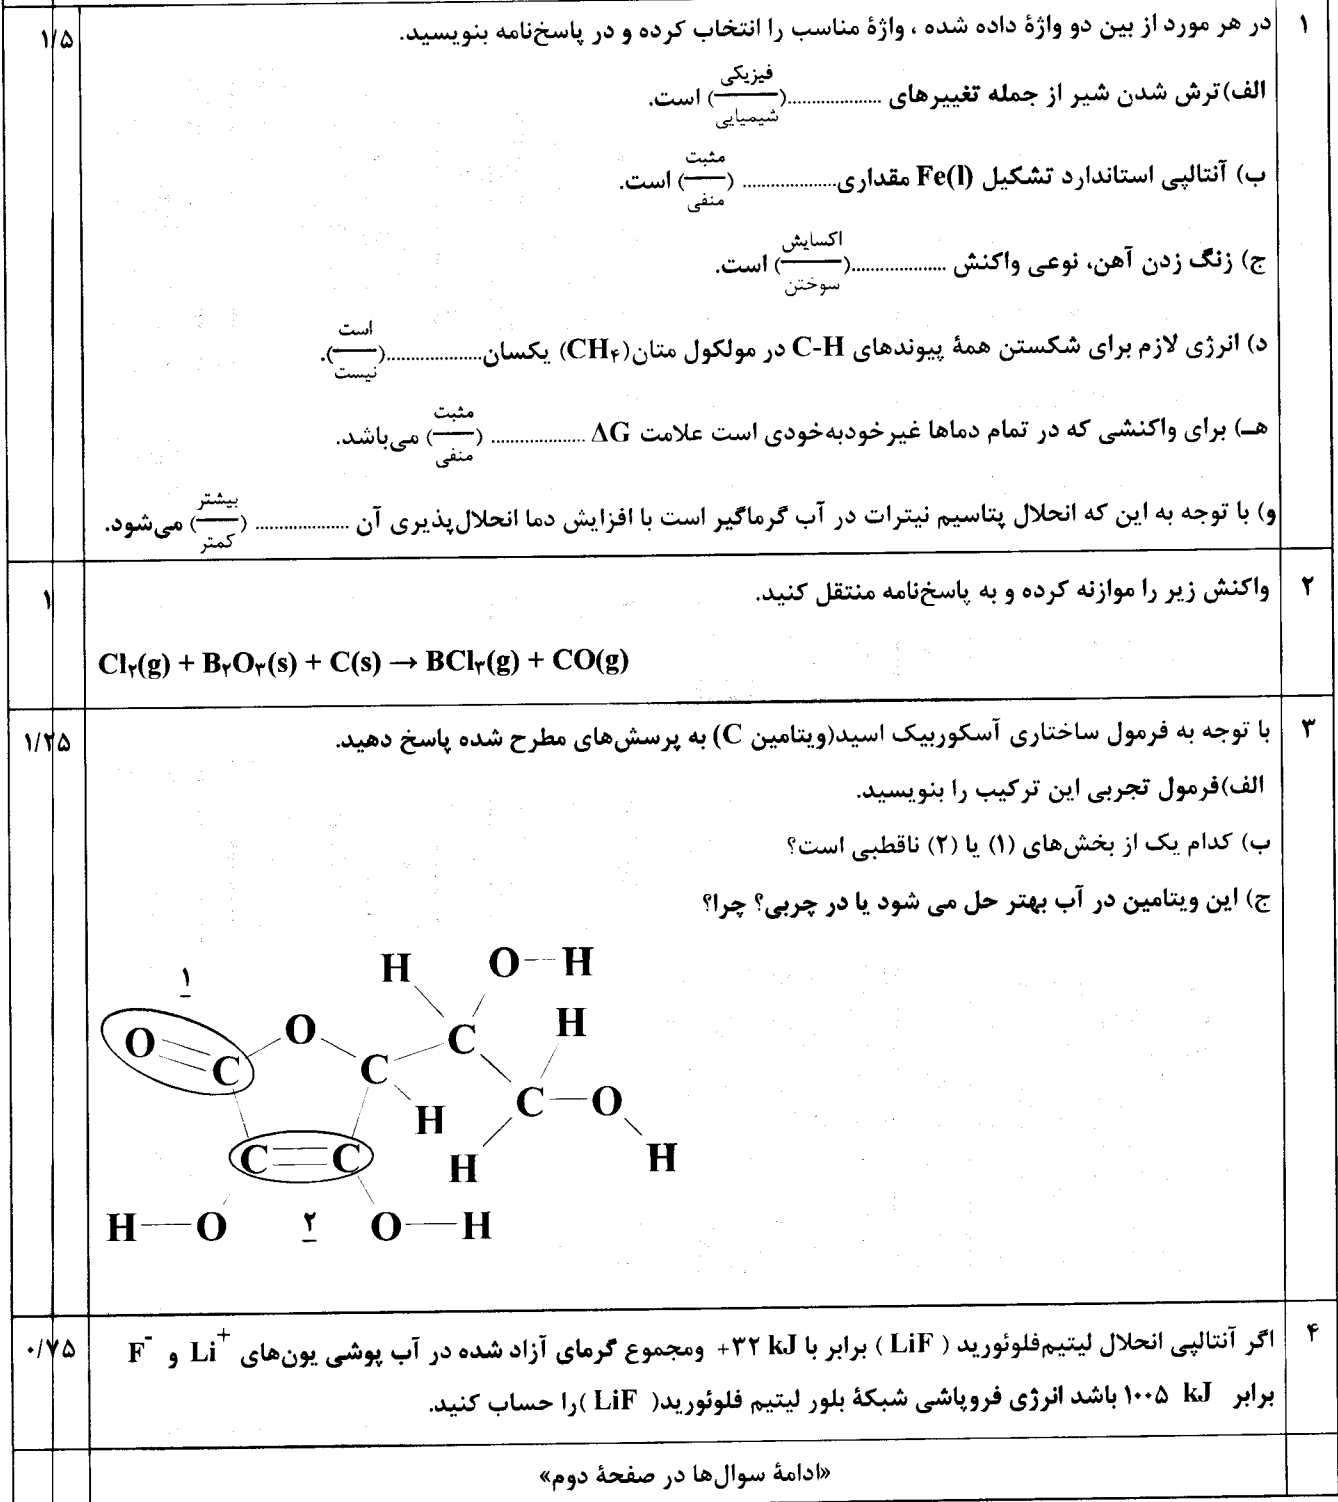 ۱
در هر مورد از بین دو واژهٔ داده شده ، واژهٔ مناسب را انتخاب کرده و در پاسخ‌نامه بنویسید.
۱/۵
الف) ترش شدن شیر از جمله تغییرهای ....................(فیزیکی/شیمیایی) است.
ب) آنتالپی استاندارد تشکیل Fe(l) مقداری.................... (مثبت/منفی) است.
ج) زنگ زدن آهن، نوعی واکنش ....................(اکسایش/سوختن) است.
د) انرژی لازم برای شکستن همهٔ پیوندهای C-H در مولکول متان(CH۴) یکسان....................(است/نیست).
هـ) برای واکنشی که در تمام دماها غیرخودبه‌خودی است علامت ΔG .................... (مثبت/منفی) می‌باشد.
و) با توجه به این که انحلال پتاسیم نیترات در آب گرماگیر است با افزایش دما انحلال‌پذیری آن .................... (بیشتر/کمتر) می‌شود.
۲
واکنش زیر را موازنه کرده و به پاسخ‌نامه منتقل کنید.
۱
Cl۲(g) + B۲O۳(s) + C(s) → BCl۳(g) + CO(g)
۳
با توجه به فرمول ساختاری آسکوربیک اسید(ویتامین C) به پرسش‌های مطرح شده پاسخ دهید.
۱/۲۵
الف)فرمول تجربی این ترکیب را بنویسید.
ب) کدام یک از بخش‌های (۱) یا (۲) ناقطبی است؟
ج) این ویتامین در آب بهتر حل می شود یا در چربی؟ چرا؟
۱
H O H
O C O C C H
H C O
C C H H
H O ۲ O H
۴
اگر آنتالپی انحلال لیتیم‌فلوئورید ( LiF ) برابر با ۳۲ kJ+ ومجموع گرمای آزاد شده در آب پوشی یون‌های Li⁺ و F⁻
۰/۷۵
برابر ۱۰۰۵ kJ باشد انرژی فروپاشی شبکهٔ بلور لیتیم فلوئورید( LiF )را حساب کنید.
«ادامهٔ سوال‌ها در صفحهٔ دوم»